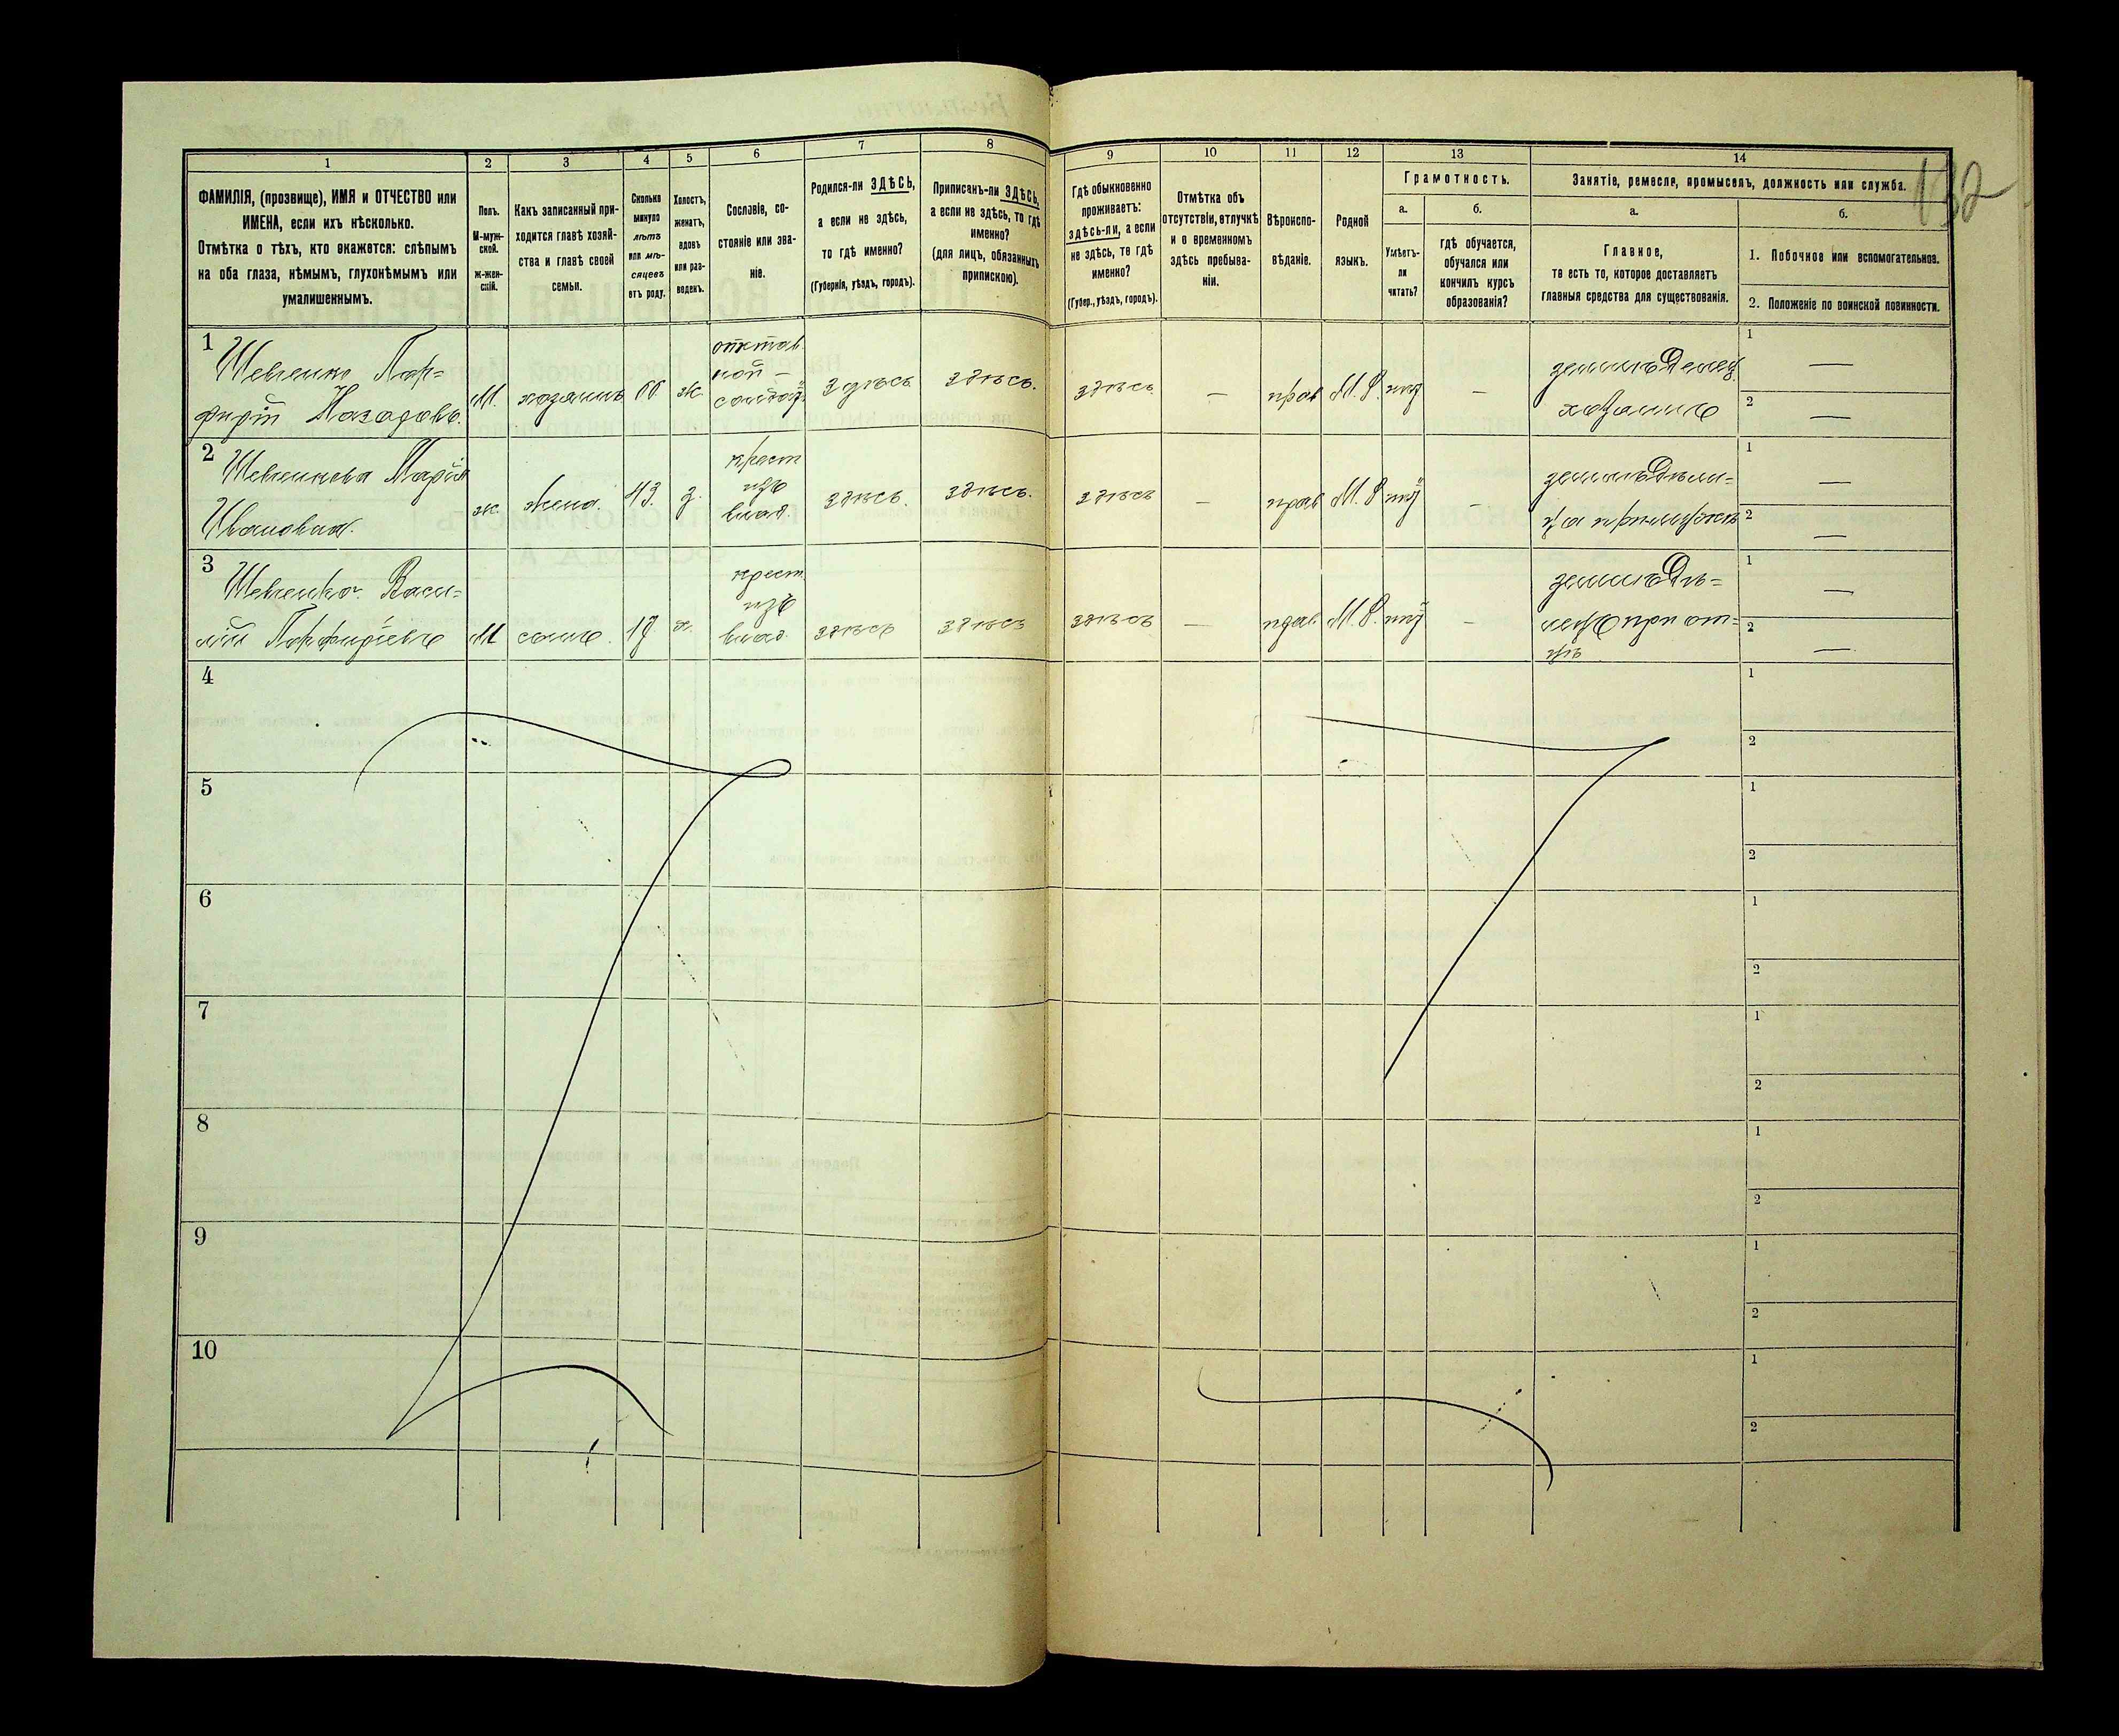 132
1
2
3
4
5
6
7
8
9
10
11
12
13
14
ФАМИЛІЯ, (прозвище), ИМЯ и ОТЧЕСТВО или
ИМЕНА, если ихъ нѣсколько.
Отмѣтка о тѣхъ, кто окажется: слѣпымъ
на оба глаза, нѣмымъ, глухонѣмымъ или
умалишеннымъ.
Полъ.
М-муж-
ской.
Ж-жен-
скій.
Какъ записанный при-
ходится главѣ хозяй-
ства и главѣ своей
семьи.
Сколько
минуло
лѣтъ
или мѣ-
сяцевъ
отъ роду.
Холостъ,
женатъ,
вдовъ
или раз-
веденъ.
Сословіе, со-
стояніе или зва-
ніе.
Родился-ли ЗДѢСЬ,
а если не здѣсь,
то гдѣ именно?
(Губернія, уѣздъ, городъ).
Приписанъ-ли ЗДѢСЬ,
а если не здѣсь, то гдѣ
именно?
(для лицъ, обязанныхъ
припискою).
Гдѣ обыкновенно
проживаетъ:
здѣсь-ли, а если
не здѣсь, то гдѣ
именно?
(Губер., уѣздъ, городъ).
Отмѣтка объ
отсутствіи, отлучкѣ
и о временномъ
здѣсь пребыва-
ніи.
Вѣроиспо-
вѣданіе.
Родной
языкъ.
Грамотность.
а.
Умѣетъ-
ли
читать?
б.
гдѣ обучается,
обучался или
кончилъ курсъ
образованія?
Занятіе, ремесло, промыселъ, должность или служба.
а.
Главное,
то есть то, которое доставляетъ
главныя средства для существованія.
б.
1. Побочное или вспомогательное.
2. Положеніе по воинской повинности.
1
Шевченко Пор-
фирій Назаровъ.
М.
хозяинъ
66
ж.
отстав
ной -
солдат
здѣсь
здѣсь.
здѣсь
—
прав
М.Р.
нѣт
—
земледелец
хозяинъ
1 —
2 —
2
Шевченкова Марія
Ивановна.
ж
жена.
43.
з.
крест
изъ
влад.
здѣсь
здѣсь.
здѣсь
—
прав
М.Р
нѣт
—
земледѣли-
ца при мужѣ
1 —
2 —
3
Шевченко Васи-
лій Порфиріевъ
М
сынъ.
17
х.
крест
изъ
влад.
здѣсь
здѣсь
здѣсь
—
прав.
М.Р.
нѣт
—
земледѣ-
лецъ при от-
цѣ
1 —
2 —
4
1
2
5
1
2
6
1
2
7
1
2
8
1
2
9
1
2
10
1
2